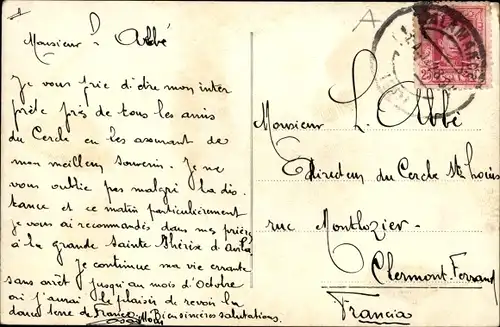 Monsieur l'Abbé
Je vous prie d'être mon inter
prète près de tous les amis
du Cercle en les assurant de
mon meilleur souvenir. Je ne
vous oublie pas malgré la dis
tance et ce matin particulièrement
je vous ai recommandés dans mes prières
à la grande Sainte Thérèse d'Avila
Je continue ma vie errante
sans arrêt jusqu'au mois d'Octobre
où j'aurai le plaisir de revoir la
douce terre de France. Bien sincères salutations.
A
SALAMANCA
25
Monsieur L'Abbé
Directeur du Cercle St Louis
rue Montlozier
Clermont-Ferrand
Francia